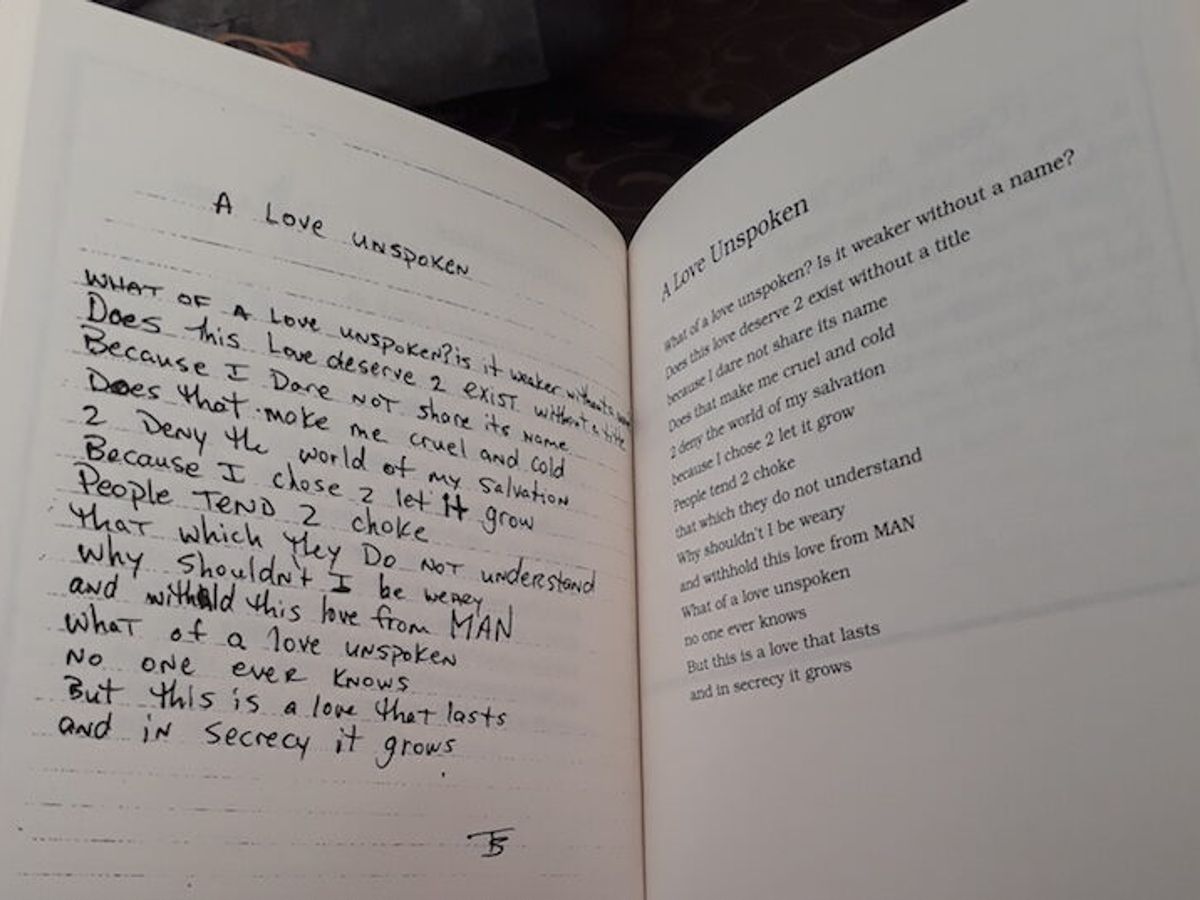 A Love UNSPOKEN
WHAT OF A Love UNSPOKEN? is it weaker without a
Does this Love deserve 2 exist without a title
Because I Dare NOT share its name
Does that make me cruel and cold
2 Deny the world of my salvation
Because I chose 2 let It grow
People TEND 2 choke
that which they Do NOT understand
why shouldn't I be weary
and withhold this love from MAN
what of a love UNSPOKEN
NO ONE EVER KNOWS
But this is a love that lasts
and iN Secrecy it grows
A Love Unspoken
What of a love unspoken? Is it weaker without a name?
Does this love deserve 2 exist without a title
because I dare not share its name
Does that make me cruel and cold
2 deny the world of my salvation
because I chose 2 let it grow
People tend 2 choke
that which they do not understand
Why shouldn't I be weary
and withhold this love from MAN
What of a love unspoken
no one ever knows
But this is a love that lasts
and in secrecy it grows